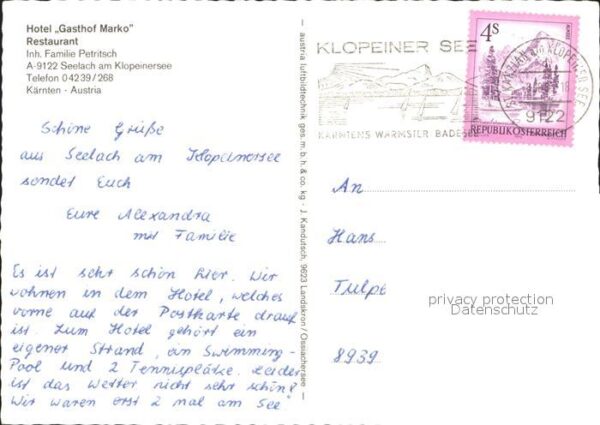 Hotel „Gasthof Marko"
Restaurant
Inh. Familie Petritsch
A-9122 Seelach am Klopeinersee
Telefon 04239/268
Kärnten - Austria
Schöne Grüße
aus Seelach am Klopeinersee
sendet Euch
Eure Alexandra
mit Familie
Es ist sehr schön hier. Wir
wohnen in dem Hotel, welches
vorne auf der Postkarte drauf
ist. Zum Hotel gehört ein
eigener Strand, ein Swimming-
Pool und 2 Tennisplätze. Leider
ist das Wetter nicht sehr schön!
Wir waren erst 2 mal am See
austria luftbildtechnik ges.m.b.h.& co. kg - J. Kandutsch, 9623 Landskron / Ossiachersee
KLOPEINER SEE
KÄRNTENS WÄRMSTER BADESEE
4S
REPUBLIK ÖSTERREICH
ST. KANZIAN am KLOPEINER SEE
9122
An
Hans
Tulpe
8939
privacy protection
Datenschutz